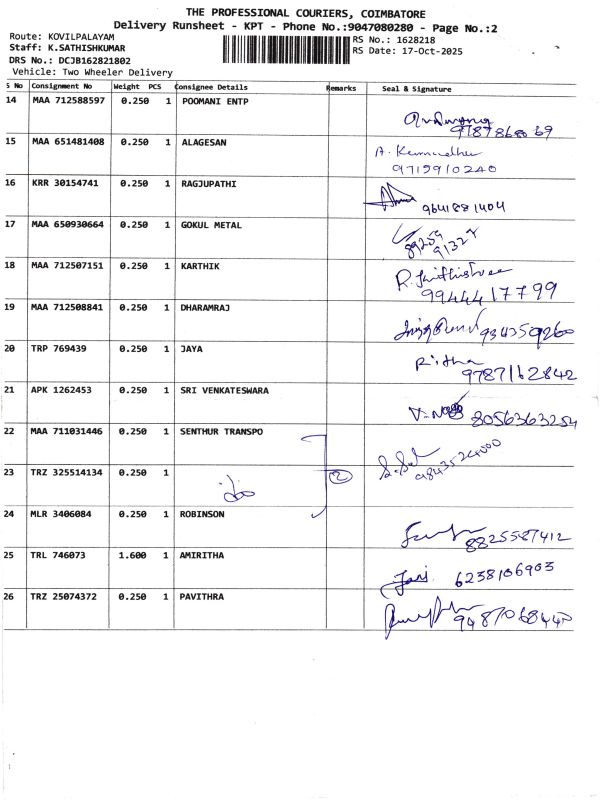 THE PROFESSIONAL COURIERS, COIMBATORE
Delivery Runsheet - KPT - Phone No.:9047080280 - Page No.:2
Route: KOVILPALAYAM
Staff: K.SATHISHKUMAR
DRS No.: DCJB162821802
Vehicle: Two Wheeler Delivery
RS No.: 1628218
RS Date: 17-Oct-2025
S No Consignment No Weight PCS Consignee Details Remarks Seal & Signature
14 MAA 712588597 0.250 1 POOMANI ENTP
15 MAA 651481408 0.250 1 ALAGESAN
9715910240
16 KRR 30154741 0.250 1 RAGJUPATHI
9641881404
17 MAA 650930664 0.250 1 GOKUL METAL
89259
91327
18 MAA 712507151 0.250 1 KARTHIK
9944417799
19 MAA 712508841 0.250 1 DHARAMRAJ
9343509260
20 TRP 769439 0.250 1 JAYA
9787162842
21 APK 1262453 0.250 1 SRI VENKATESWARA
8056363254
22 MAA 711031446 0.250 1 SENTHUR TRANSPO
23 TRZ 325514134 0.250 1 2
24 MLR 3406084 0.250 1 ROBINSON
8825587412
25 TRL 746073 1.600 1 AMIRITHA
6238106903
26 TRZ 25074372 0.250 1 PAVITHRA
9487068440